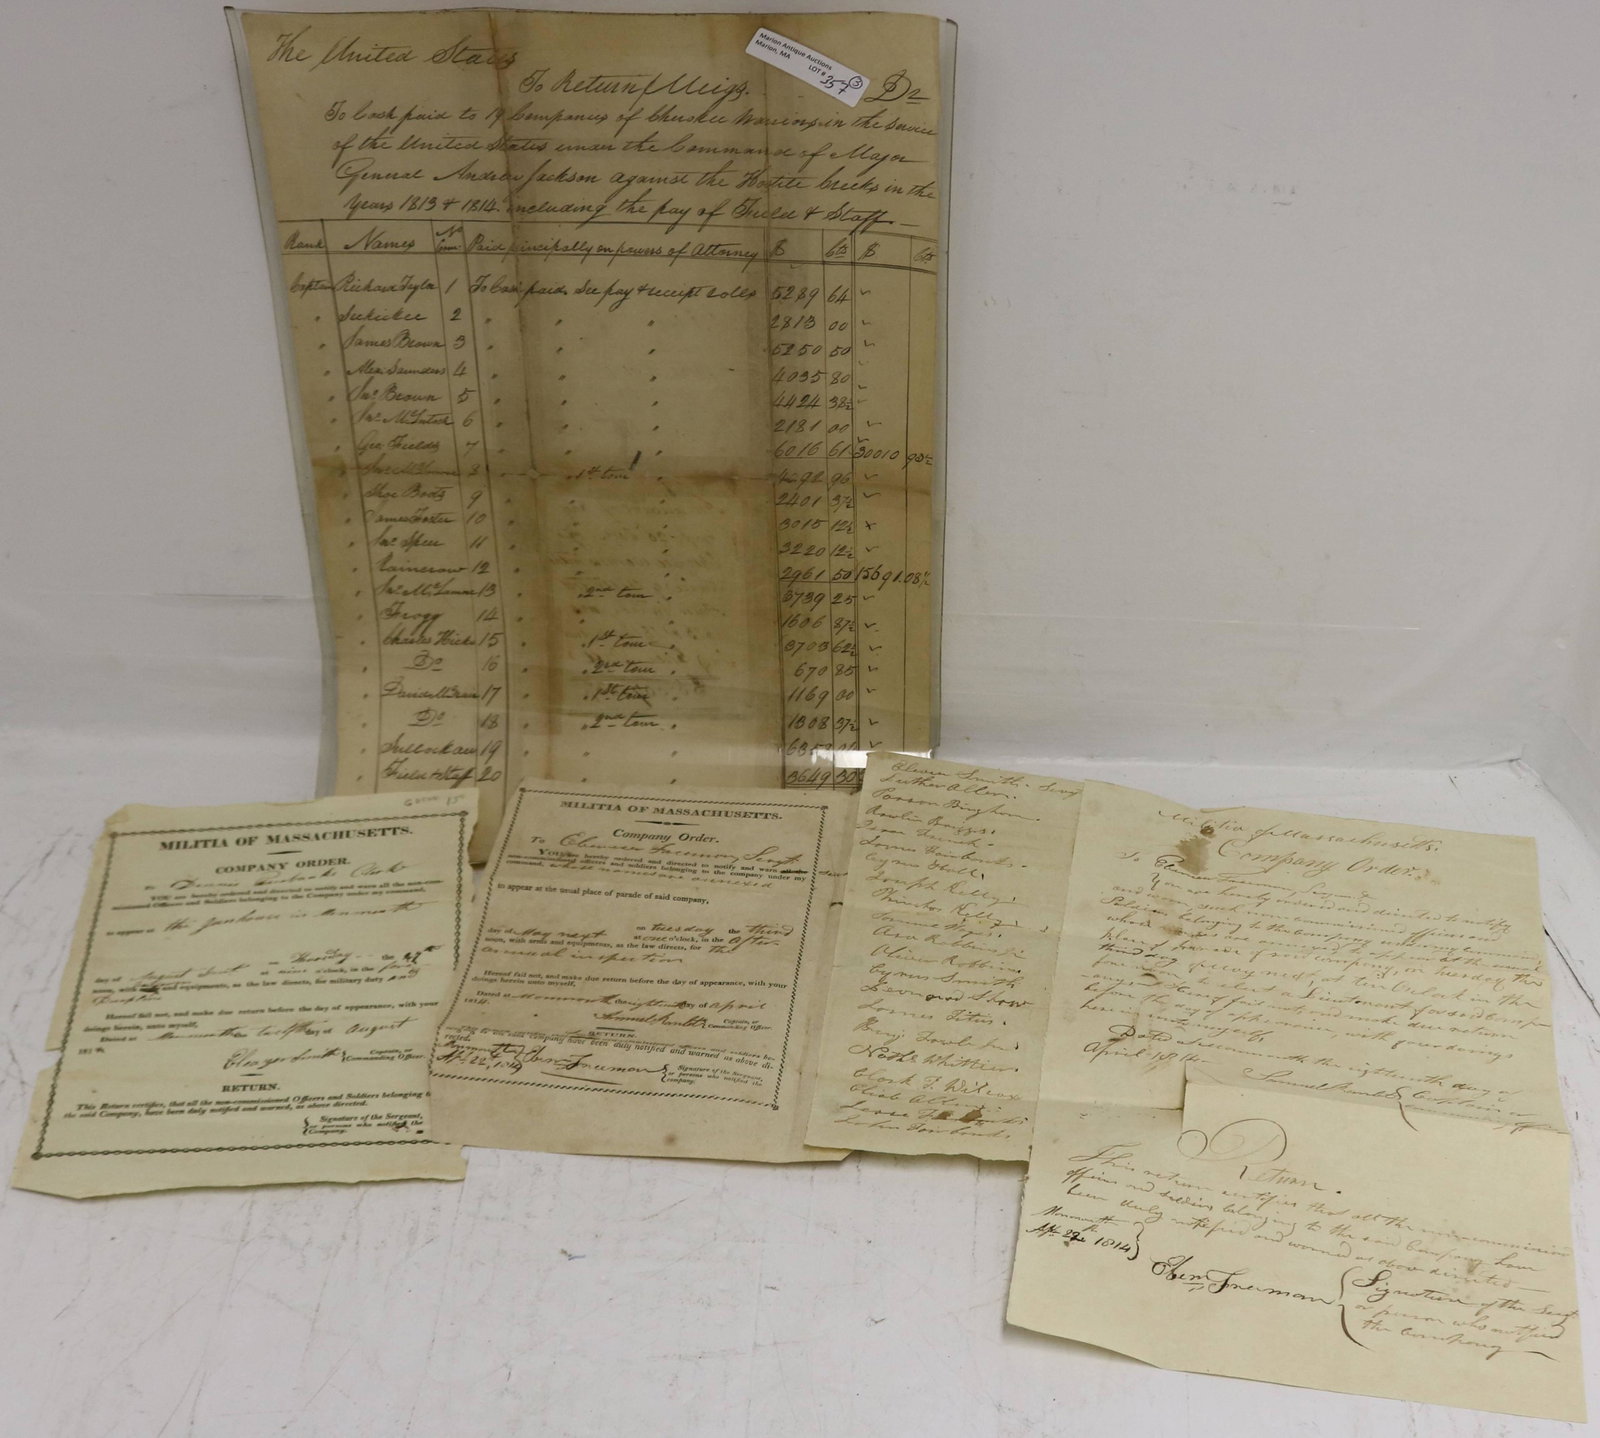 Marion Antique Auctions
Marion, MA
LOT # 357 3
The United States
To Return J Meigs. Dr
To Cash paid to 19 Companies of Cherokee Warriors in the service
of the United States under the Command of Major
General Andrew Jackson against the Hostile Creeks in the
Years 1813 & 1814. including the pay of Field & Staff.
Rank Names No Com: Paid principally on powers of Attorney $ Cts $ Cts
Captain Richard Taylor 1 To Cash paid. See pay & receipt rolls 5289 64
" 2 " " " 2813 00
" James Brown 3 " " " 5250 50
" Alexr Saunders 4 " " " 4035 80
" Jno Brown 5 " " " 4424 38½
" Jno McIntosh 6 " " " 2181 00
" Geo Fields 7 " " " 6016 61 30010
" 8 " 1st tour " 4092 96
" Shoe Boots 9 " " " 2401 37½
" James Foster 10 " " " 3015 12½
" Jno Speer 11 " " " 3220 12½
" Raincrow 12 " " " 2961 50 15691.08½
" Jno McLamore 13 " 2nd tour " 3739 25
" Frogg 14 " " " 1606 87½
" Charles Hicks 15 " 1st tour " 3703 62½
" Do 16 " 2nd tour " 670 85
" 17 " 1st tour " 1169 00
" Do 18 " 2nd tour " 1308 37½
" 19 " " "
" Field & Staff 20 " " " 3649 30
MILITIA OF MASSACHUSETTS.
COMPANY ORDER.
To Clerk
YOU are hereby ordered and directed to notify and warn all the non-com-
missioned Officers and Soldiers belonging to the Company under my command,
to appear at the in Monmouth
on Thursday the
day of August at nine o'clock, in the fore
noon, with arms and equipments, as the law directs, for military duty and
Hereof fail not, and make due return before the day of appearance, with your
doings herein, unto myself.
Dated at Monmouth twelfth day of August
Eleazer Smith } Captain, or
Commanding Officer.
RETURN.
This Return certifies, that all the non-commissioned Officers and Soldiers belonging to
the said Company, have been duly notified and warned, as above directed.
Signature of the Sergeant,
or persons who notified the
Company.
MILITIA OF MASSACHUSETTS.
Company Order.
To Ebenezer Freeman, Sergt
You are hereby ordered and directed to notify and warn
non-commissioned officers and soldiers belonging to the company under my
command, whose names are annexed
to appear at the usual place of parade of said company,
on tuesday the third
day of May next at one o'clock, in the after-
noon, with arms and equipments, as the law directs, for the
annual inspection
Hereof fail not, and make due return before the day of appearance, with your
doings herein unto myself.
Dated at Monmouth the eighteenth day of April
1814.
Captain, or
Commanding Officer.
RETURN.
company have been duly notified and warned as above di-
rected.
Monmouth
Apl 22d, 1814 Ebenr Freeman
Signature of the Sergeant,
or persons who notified the
company.
Oliver Smith. Sergt
Luther Allen.
Parson Bingham.
Rawlin Briggs.
Isaac French.
Lornes Fairbanks.
Cyrus Hall.
Joseph Kelly.
Phinehas Kelly.
Asa Robbins Jr
Oliver Robbins
Cyrus Smith
Leonard Shaw
Lornes Titus.
Benj Towle Jr.
Nathl Whittier.
Clark T. Wilcox
John Fairbanks.
Militia of Massachusetts.
Company Order.
To Ebenezer Freeman, Sergeant
You are hereby ordered and directed to notify
and warn, such non-commissioned officers and
Soldiers belonging to the Company under my command,
whose names are annexed to appear at the usual
place of parade of said company, on tuesday, the
third day of May next, at ten O'clock in the
forenoon to elect a Lieutenant for said Comp-
any and hereof fail not, and make due return
before the day of appearance with your doings
herein unto myself.
Dated at Monmouth the eighteenth day of
April 1814.
Captain or
commanding officer
Return.
This return certifies that all the non-commission
officers and soldiers belonging to the said Company have
been duly notified and warned as above directed
Monmouth
Apl 22d 1814 }
Ebenr Freeman { Signature of the Sergt
or person who notified
the company